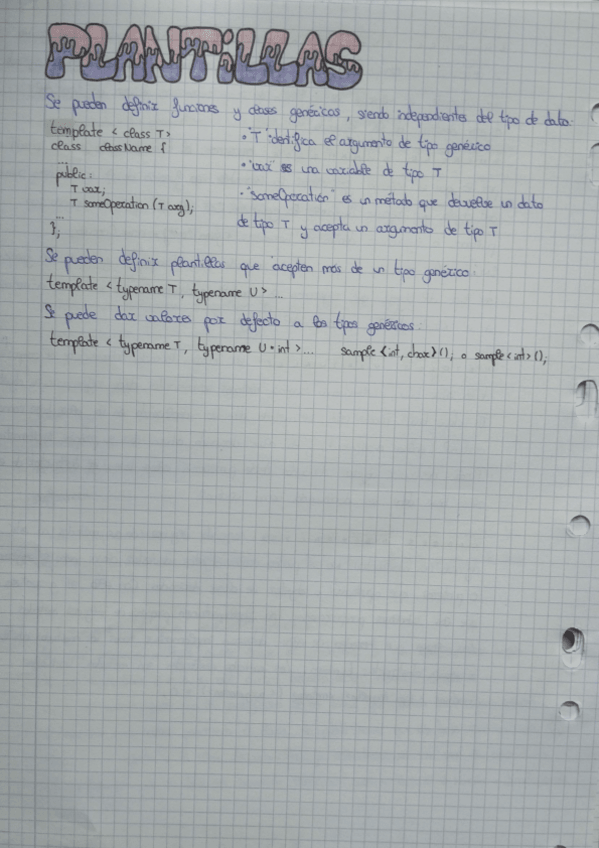 PLANTiLLAS
Se pueden definir funciones y clases genéricas, siendo independientes del tipo de dato.
template < class T>
class className {
...
public:
T var;
T someOperation (T arg);
...
};
• "T" identifica el argumento de tipo genérico
• "var" es una variable de tipo T
• "someOperation" es un método que devuelve un dato
de tipo T y acepta un argumento de tipo T
Se pueden definir plantillas que acepten más de un tipo genérico:
template <typename T, typename U> ...
Se puede dar valores por defecto a los tipos genéricos:
template < typename T, typename U = int >... sample <int, char>(); o sample <int>();